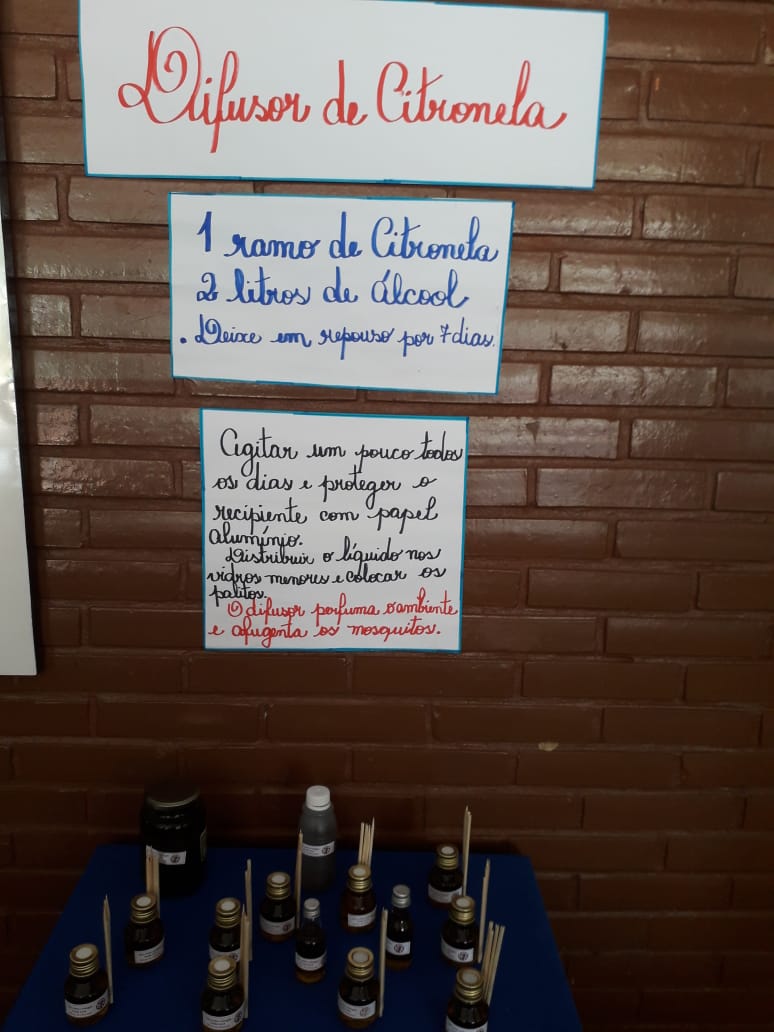 Difusor de Citronela
1 ramo de Citronela
2 litros de álcool
. Deixe em repouso por 7 dias.
Agitar um pouco todos
os dias e proteger o
recipiente com papel
alumínio.
Distribuir o líquido nos
vidros menores e colocar os
palitos.
O difusor perfuma o ambiente
e afugenta os mosquitos.